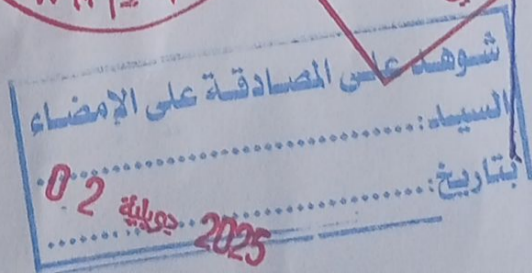 شوهد على المصادقة على الإمضاء
السيد:
بتاريخ:
02 جويلية 2025